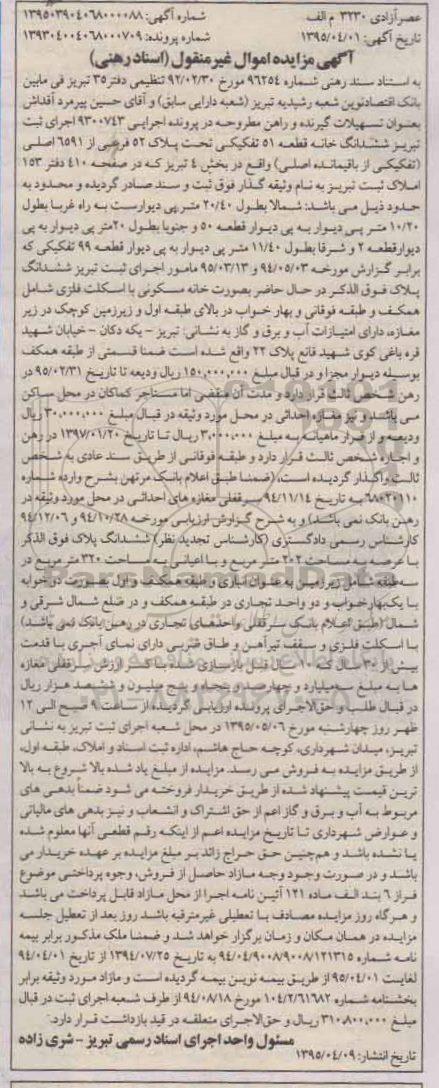 عصرآزادی ۳۲۳۰ م الف
شماره آگهی: ۱۳۹۵۰۳۹۰۴۰۶۸۰۰۰۰۸۸
تاریخ آگهی: ۱۳۹۵/۰۴/۰۱
شماره پرونده: ۱۳۹۳۰۴۰۰۴۰۶۸۰۰۰۷۰۹
آگهی مزایده اموال غیر منقول (اسناد رهنی)
به استناد سند رهنی شماره ۹۶۲۵۴ مورخ ۹۲/۰۲/۳۰ تنظیمی دفتر ۳۵ تبریز فی مابین
بانک اقتصادنوین شعبه رشدیه تبریز (شعبه دارایی سابق) و آقای حسین پیرمرد آقداش
بعنوان تسهیلات گیرنده و راهن مطروحه در پرونده اجرایی ۹۳۰۰۷۴۳ اجرای ثبت
تبریز ششدانگ خانه قطعه ۵۱ تفکیکی تحت پلاک ۵۲ فرعی از ۶۵۹۱ اصلی
(تفکیکی از باقیمانده اصلی) واقع در بخش ۴ تبریز که در صفحه ۴۱۰ دفتر ۱۵۳
املاک ثبت تبریز به نام وثیقه گذار فوق ثبت و سند صادر گردیده و محدود به
حدود ذیل می باشد: شمالا بطول ۲۰/۴۰ متر پی دیواریست به راه غربا بطول
۱۰/۲۰ متر پی دیوار به پی دیوار قطعه ۵۰ و جنوبا بطول ۲۰متر پی دیوار به پی
دیوارقطعه ۲ و شرقا بطول ۱۱/۴۰ متر پی دیوار به پی دیوار قطعه ۹۹ تفکیکی که
برابر گزارش مورخه ۹۴/۰۵/۰۳ و ۹۵/۰۳/۱۳ مامور اجرای ثبت تبریز ششدانگ
پلاک فوق الذکر در حال حاضر بصورت خانه مسکونی با اسکلت فلزی شامل
همکف و طبقه فوقانی و بهار خواب در بالای طبقه اول و زیرزمین کوچک در زیر
مغازه، دارای امتیازات آب و برق و گاز به نشانی: تبریز - یکه دکان - خیابان شهید
قره باغی کوی شهید قانع پلاک ۲۲ واقع شده است ضمنا قسمتی از طبقه همکف
بوسیله دیوار مجزا و در قبال مبلغ ۱۵۰,۰۰۰,۰۰۰ ریال ودیعه تا تاریخ ۹۵/۰۲/۳۱ در
رهن شخص ثالث قرار دارد و مدت آن منقضی اما مستاجر کماکان در محل ساکن
می باشد و نیز مغازه احداثی در محل مورد وثیقه در قبال مبلغ ۳۰,۰۰۰,۰۰۰ ریال
ودیعه و از قرار ماهیانه به مبلغ ۳,۰۰۰,۰۰۰ ریال تا تاریخ ۱۳۹۷/۰۱/۲۰ در رهن
و اجاره شخص ثالث قرار دارد و طبقه فوقانی از طریق سند عادی به شخص
ثالث واگذار گردیده است، (ضمنا طبق اعلام بانک مرتهن بشرح وارده شماره
۶۸۰۲۰۱۱۰ به تاریخ ۹۴/۱۱/۱۴ سرقفلی مغازه های احداثی در محل مورد وثیقه در
رهن بانک نمی باشد) و به شرح گزارش ارزیابی مورخه ۹۴/۱۰/۲۸ و ۹۴/۱۲/۰۶
کارشناس رسمی دادگستری (کارشناس تجدید نظر) ششدانگ پلاک فوق الذکر
با عرصه به مساحت ۲۰۲ متر مربع و با اعیانی به مساحت ۳۲۰ متر مربع در
سه طبقه شامل زیرزمین به عنوان انباری و طبقه همکف و اول به صورت دو خوابه
با یک بهارخواب و دو واحد تجاری در طبقه همکف و در ضلع شمال شرقی و
شمال (طبق اعلام بانک سرقفلی واحدهای تجاری در رهن بانک نمی باشد)
با اسکلت فلزی و سقف تیرآهن و طاق ضربی دارای نمای آجری با قدمت
بیش از ۳۰ سال که سال قبل بازسازی شده با کسر ارزش سرقفلی مغازه
ها به مبلغ سه میلیارد و چهارصد و پنجاه و پنج میلیون و ششصد هزار ریال
در قبال طلب و حق الاجرای پرونده ارزیابی گردیده از ساعت ۹ صبح الی ۱۲
ظهر روز چهارشنبه مورخ ۱۳۹۵/۰۵/۰۶ در محل شعبه اجرای ثبت تبریز به نشانی
تبریز، میدان شهرداری، کوچه حاج هاشم، اداره ثبت اسناد و املاک، طبقه اول،
از طریق مزایده به فروش می رسد. مزایده از مبلغ یاد شده بالا شروع به بالا
ترین قیمت پیشنهاد شده از طریق خریدار فروخته می شود ضمنا بدهی های
مربوط به آب و برق و گاز اعم از حق اشتراک و انشعاب و نیز بدهی های مالیاتی
و عوارض شهرداری تا تاریخ مزایده اعم از اینکه رقم قطعی آنها معلوم شده
یا نشده باشد و هم چنین حق حراج زائد بر مبلغ مزایده بر عهده خریدار می
باشد و در صورت وجود وجه مازاد حاصل از فروش، وجوه پرداختی موضوع
فراز ۶ بند الف ماده ۱۲۱ آئین نامه اجرا از محل مازاد قابل پرداخت می باشد
و هرگاه روز مزایده مصادف با تعطیلی غیرمترقبه باشد روز بعد از تعطیل جلسه
مزایده در همان مکان و زمان برگزار خواهد شد و ضمنا ملک مذکور برابر بیمه
نامه شماره ۹۴/۰۴/۹۰۰۸/۹۰۰۸/۱۲۱۳۱۵ به تاریخ ۱۳۹۴/۰۷/۲۵ از تاریخ ۹۴/۰۴/۰۱
لغایت ۹۵/۰۴/۰۱ از طریق بیمه نوین بیمه گردیده است و مازاد مورد وثیقه برابر
بخشنامه شماره ۱۰۴/۲/۶۱۶۸۲ مورخ ۹۴/۰۸/۱۸ از طرف شعبه اجرای ثبت در قبال
مبلغ ۳۱۰,۸۰۰,۰۰۰ ریال و حق الاجرای متعلقه در قید بازداشت قرار دارد.
مسئول واحد اجرای اسناد رسمی تبریز - شری زاده
تاریخ انتشار: ۱۳۹۵/۰۴/۰۹